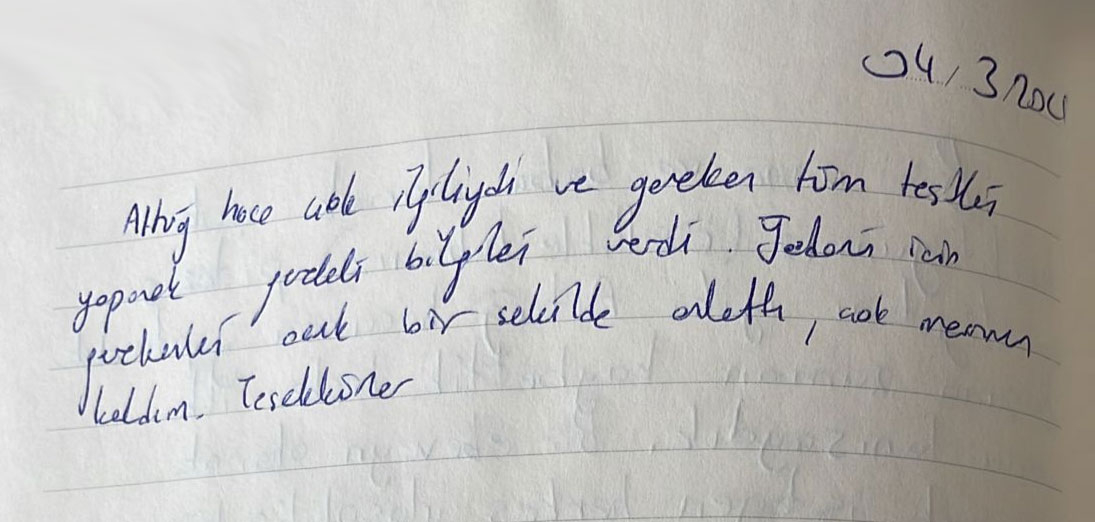 04/3/20
Altuğ hoca çok ilgiliydi ve gereken tüm testleri
yaparak gerekli bilgileri verdi. Tedavi için
gerekenleri açık bir şekilde anlattı, çok memnun
kaldım. Teşekkürler